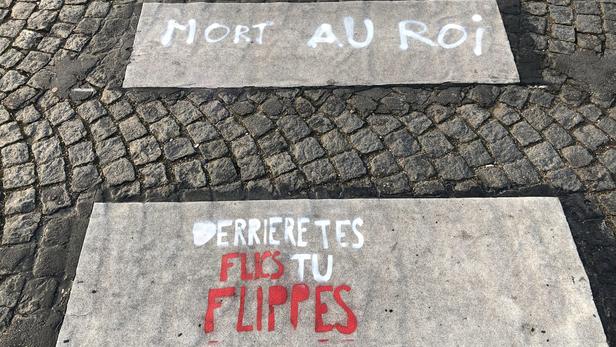 MORT AU ROi
DERRIERE TES
FLICS TU
FLIPPES